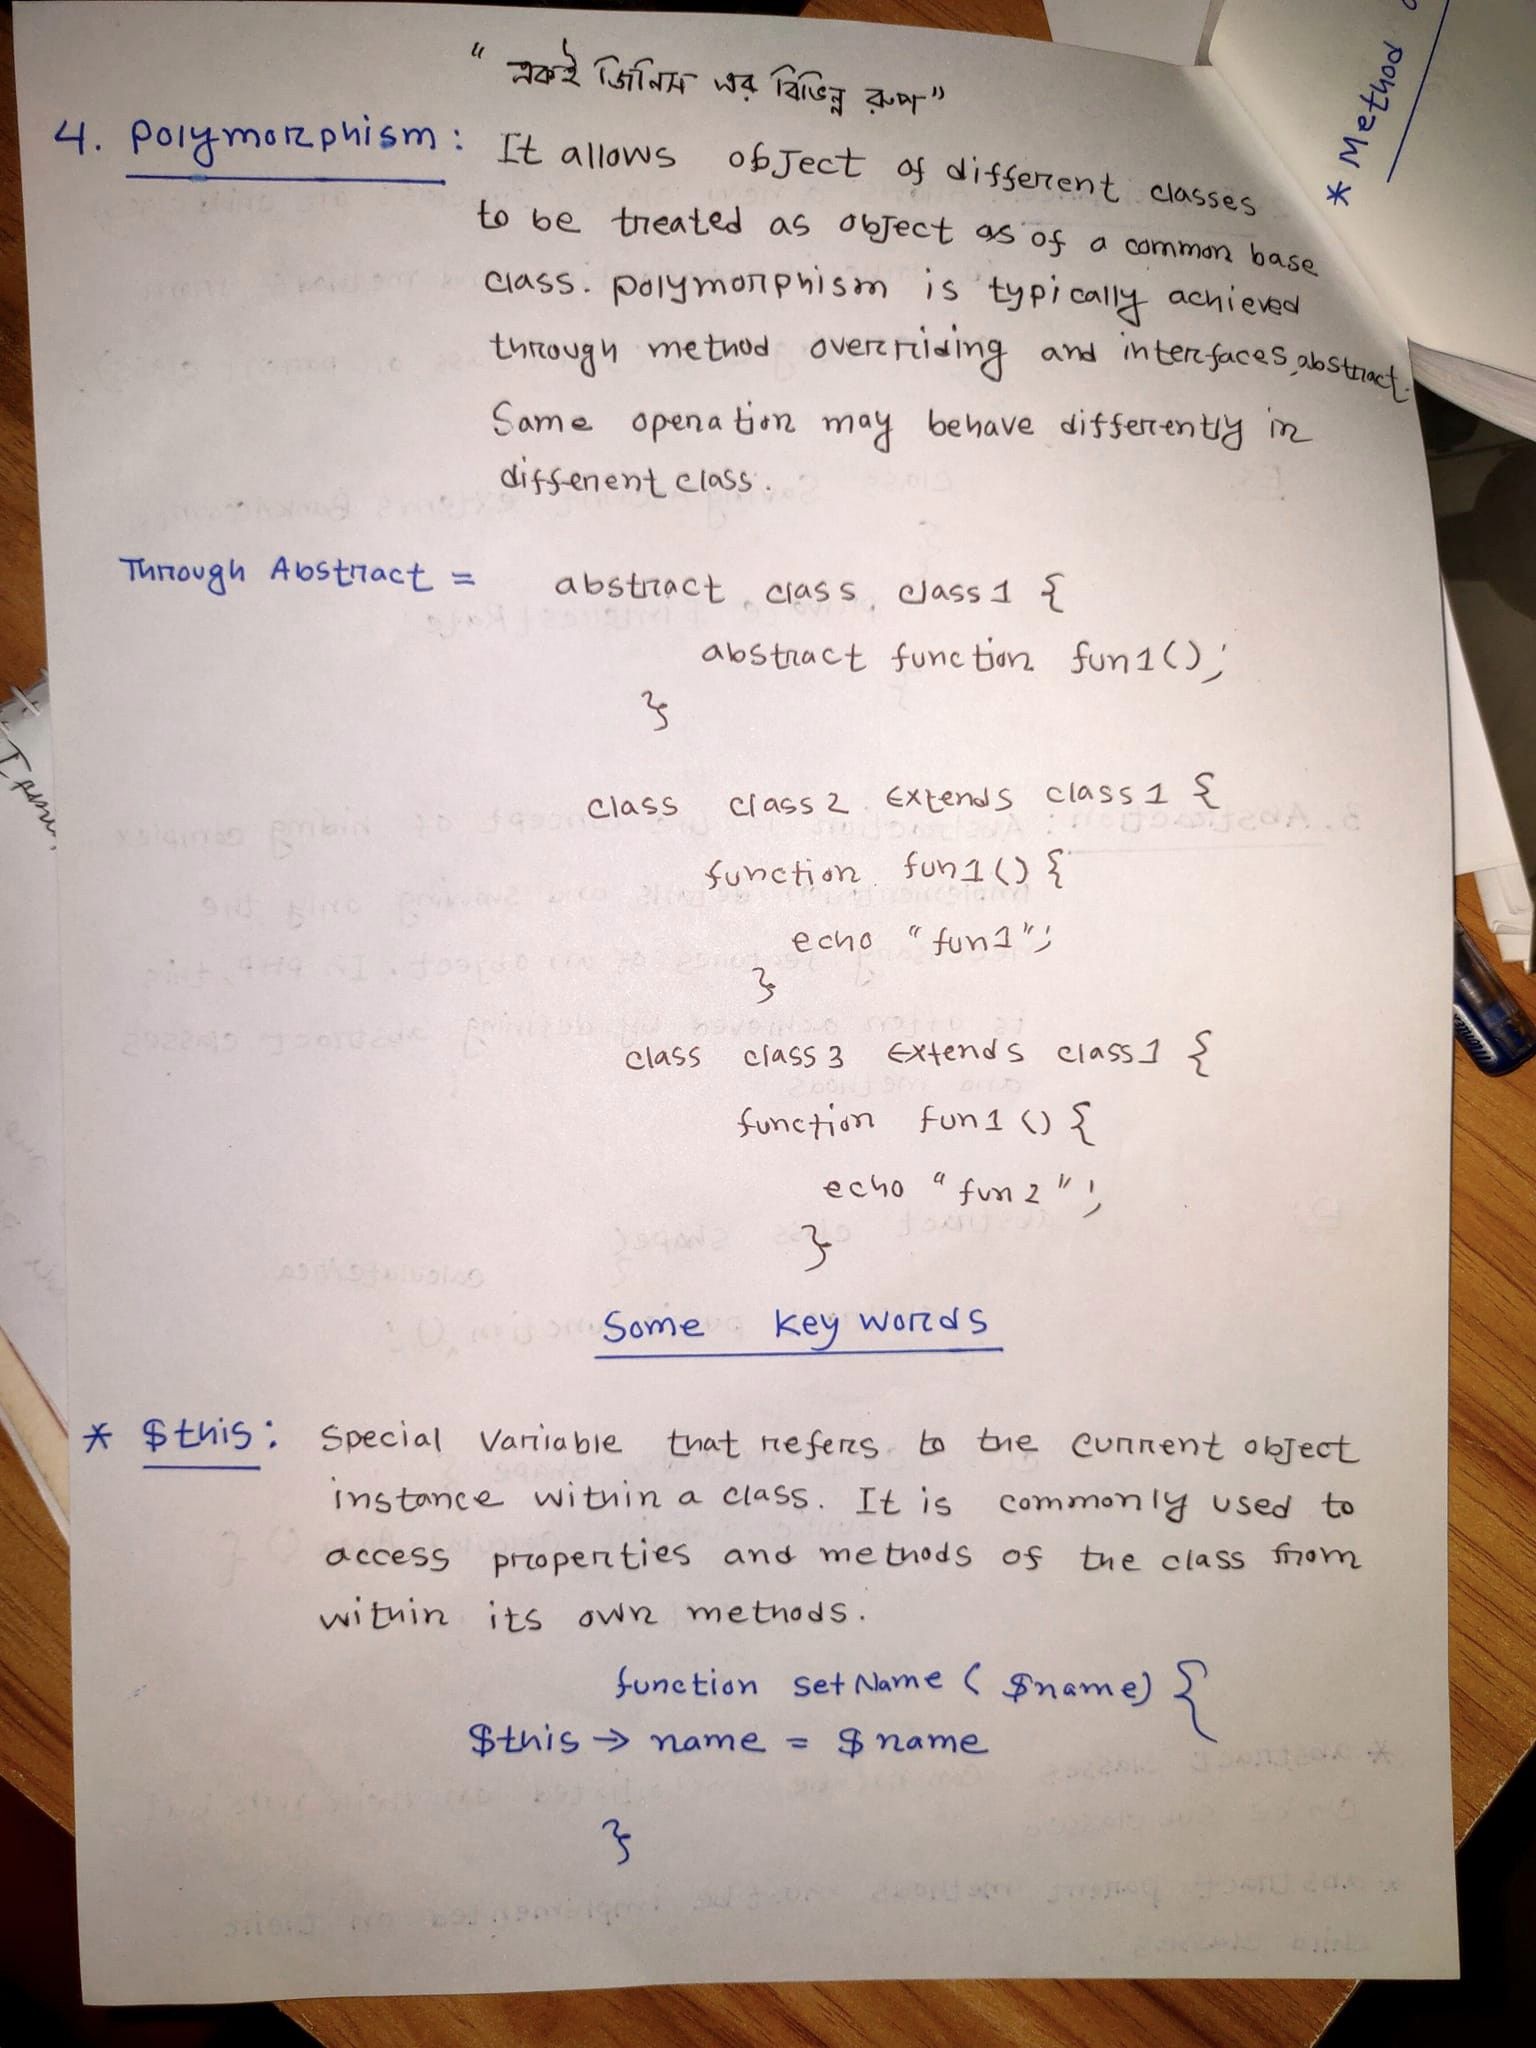 “একই জিনিস এর বিভিন্ন রুপ”
4. Polymorphism: It allows object of different classes
to be treated as object as of a common base
class. polymorphism is typically achieved
through method overriding and interfaces, abstract.
Same operation may behave differently in
different class.
Through Abstract = abstract class class1 {
abstract function fun1();
}
class class2 Extends class1 {
function fun1() {
echo "fun1";
}
class class3 Extends class1 {
function fun1() {
echo "fun2";
}
Some key words
* $this: Special Variable that refers to the current object
instance within a class. It is commonly used to
access properties and methods of the class from
within its own methods.
function setName ( $name) {
$this → name = $name
}
* Method